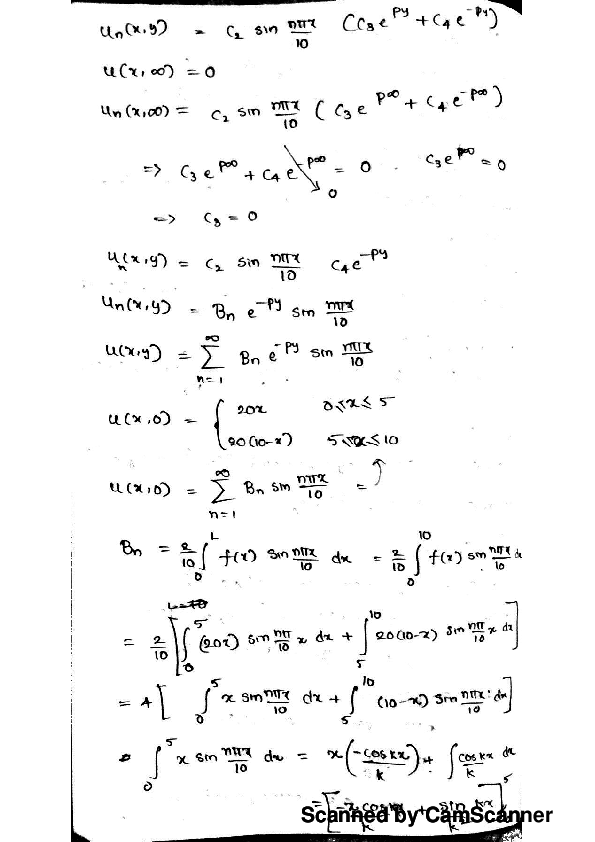 un(x,y) = c2 sin nπx/10 (c3 e^py + c4 e^-py)
u(x,∞) = 0
un(x,∞) = c2 sin nπx/10 (c3 e^p∞ + c4 e^-p∞)
=> c3 e^p∞ + c4 e^-p∞ = 0 . c3 e^p∞ = 0
0
=> c3 = 0
un(x,y) = c2 sin nπx/10 c4 e^-py
un(x,y) = Bn e^-py sin nπx/10
u(x,y) = ∑_{n=1}^{∞} Bn e^-py sin nπx/10
u(x,0) = { 20x 0≤x≤5
20(10-x) 5≤x≤10
u(x,0) = ∑_{n=1}^{∞} Bn sin nπx/10 =
Bn = 2/10 ∫_0^L f(x) sin nπx/10 dx = 2/10 ∫_0^10 f(x) sin nπx/10 dx
L=10
= 2/10 [∫_0^5 (20x) sin nπ/10 x dx + ∫_5^10 20(10-x) sin nπ/10 x dx]
= 4 [ ∫_0^5 x sin nπx/10 dx + ∫_5^10 (10-x) sin nπx/10 dx]
∫_0^5 x sin nπx/10 dx = x(-cos kx/k) + ∫ cos kx/k dx
= [-x cos kx/k + sin kx/k]^5
Scanned by CamScanner